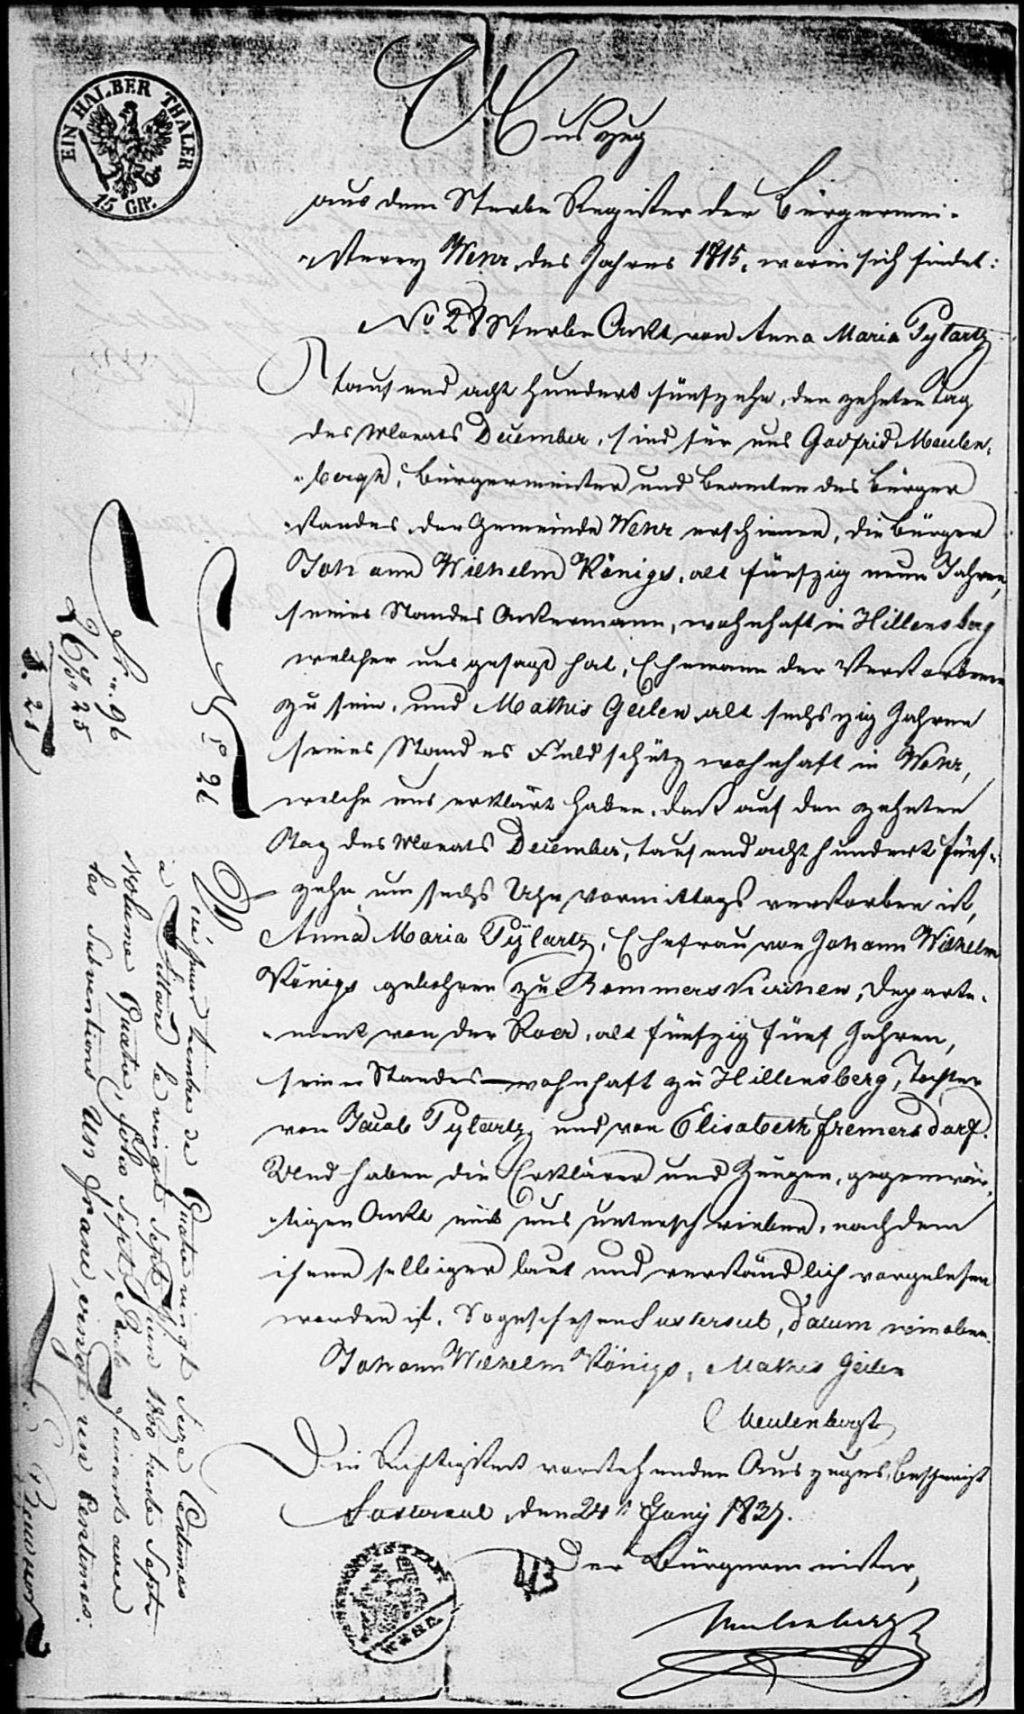 EIN HALBER THALER
15 GR.
Auszug
aus dem Sterbe Register der Bürgermei-
-sterey Wehr, des Jahres 1815, worin sich findet:
No 28 Sterbe Ackt von Anna Maria Pylartz
tausend acht hundert fünfzehn, den zehnten Tag
des Monats December, sind für uns Godfrid Meulen-
-bergh, Bürgermeister und Beamten des Bürger
-standes der Gemeinde Wehr erschienen, die Bürger
Johann Wilhelm Königs, alt fünfzig neun Jahren,
seines Standes Ackermann, wohnhaft in Hillensberg
welcher uns gesagt hat, Ehemann der Verstorbenen
zu sein, und Mathis Geilen alt sechszig Jahren
seines Standes Feldschütz wohnhaft in Wehr,
welche uns erklärt haben, daß auf den zehnten
Tag des Monats December, tausend acht hundert fünf-
zehn um sechs Uhr Vormittags verstorben ist,
Anna Maria Pÿlartz, Ehefrau von Johann Wilhelm
Königs gebohren zu Rommerskirchen, Departe-
-ment von der Roer, alt fünfzig fünf Jahren,
seines Standes — wohnhaft zu Hillensberg, Tochter
von Jacob Pylartz und von Elisabeth Fremersdorf.
Und haben die Erklärer und Zeugen, gegenwär-
-tigen Ackt mit uns unterschrieben, nachdem
ihnen selbiger laut und verständlich vorgelesen
worden ist. So geschehen Susterseel, Datum wie oben.
Johann Wilhelm Königs, Mathis Geilen
Meulenbergh
Die Richtigkeit vorstehenden Auszuges bescheinigt
Susterseel, den 24n Juny 1837.
Der Bürgermeister,
Meulenbergh
No 26
Vu pour timbre de Quatre vingt Seize Centimes
à Sittard le vingt Sept Juin 1800 trente Sept
Volume Quatre, folio Sept, Recto faisant avec
les Subventions Un franc, vingt un Centimes.
fr. „ 96
„ 25
f. 1. 21